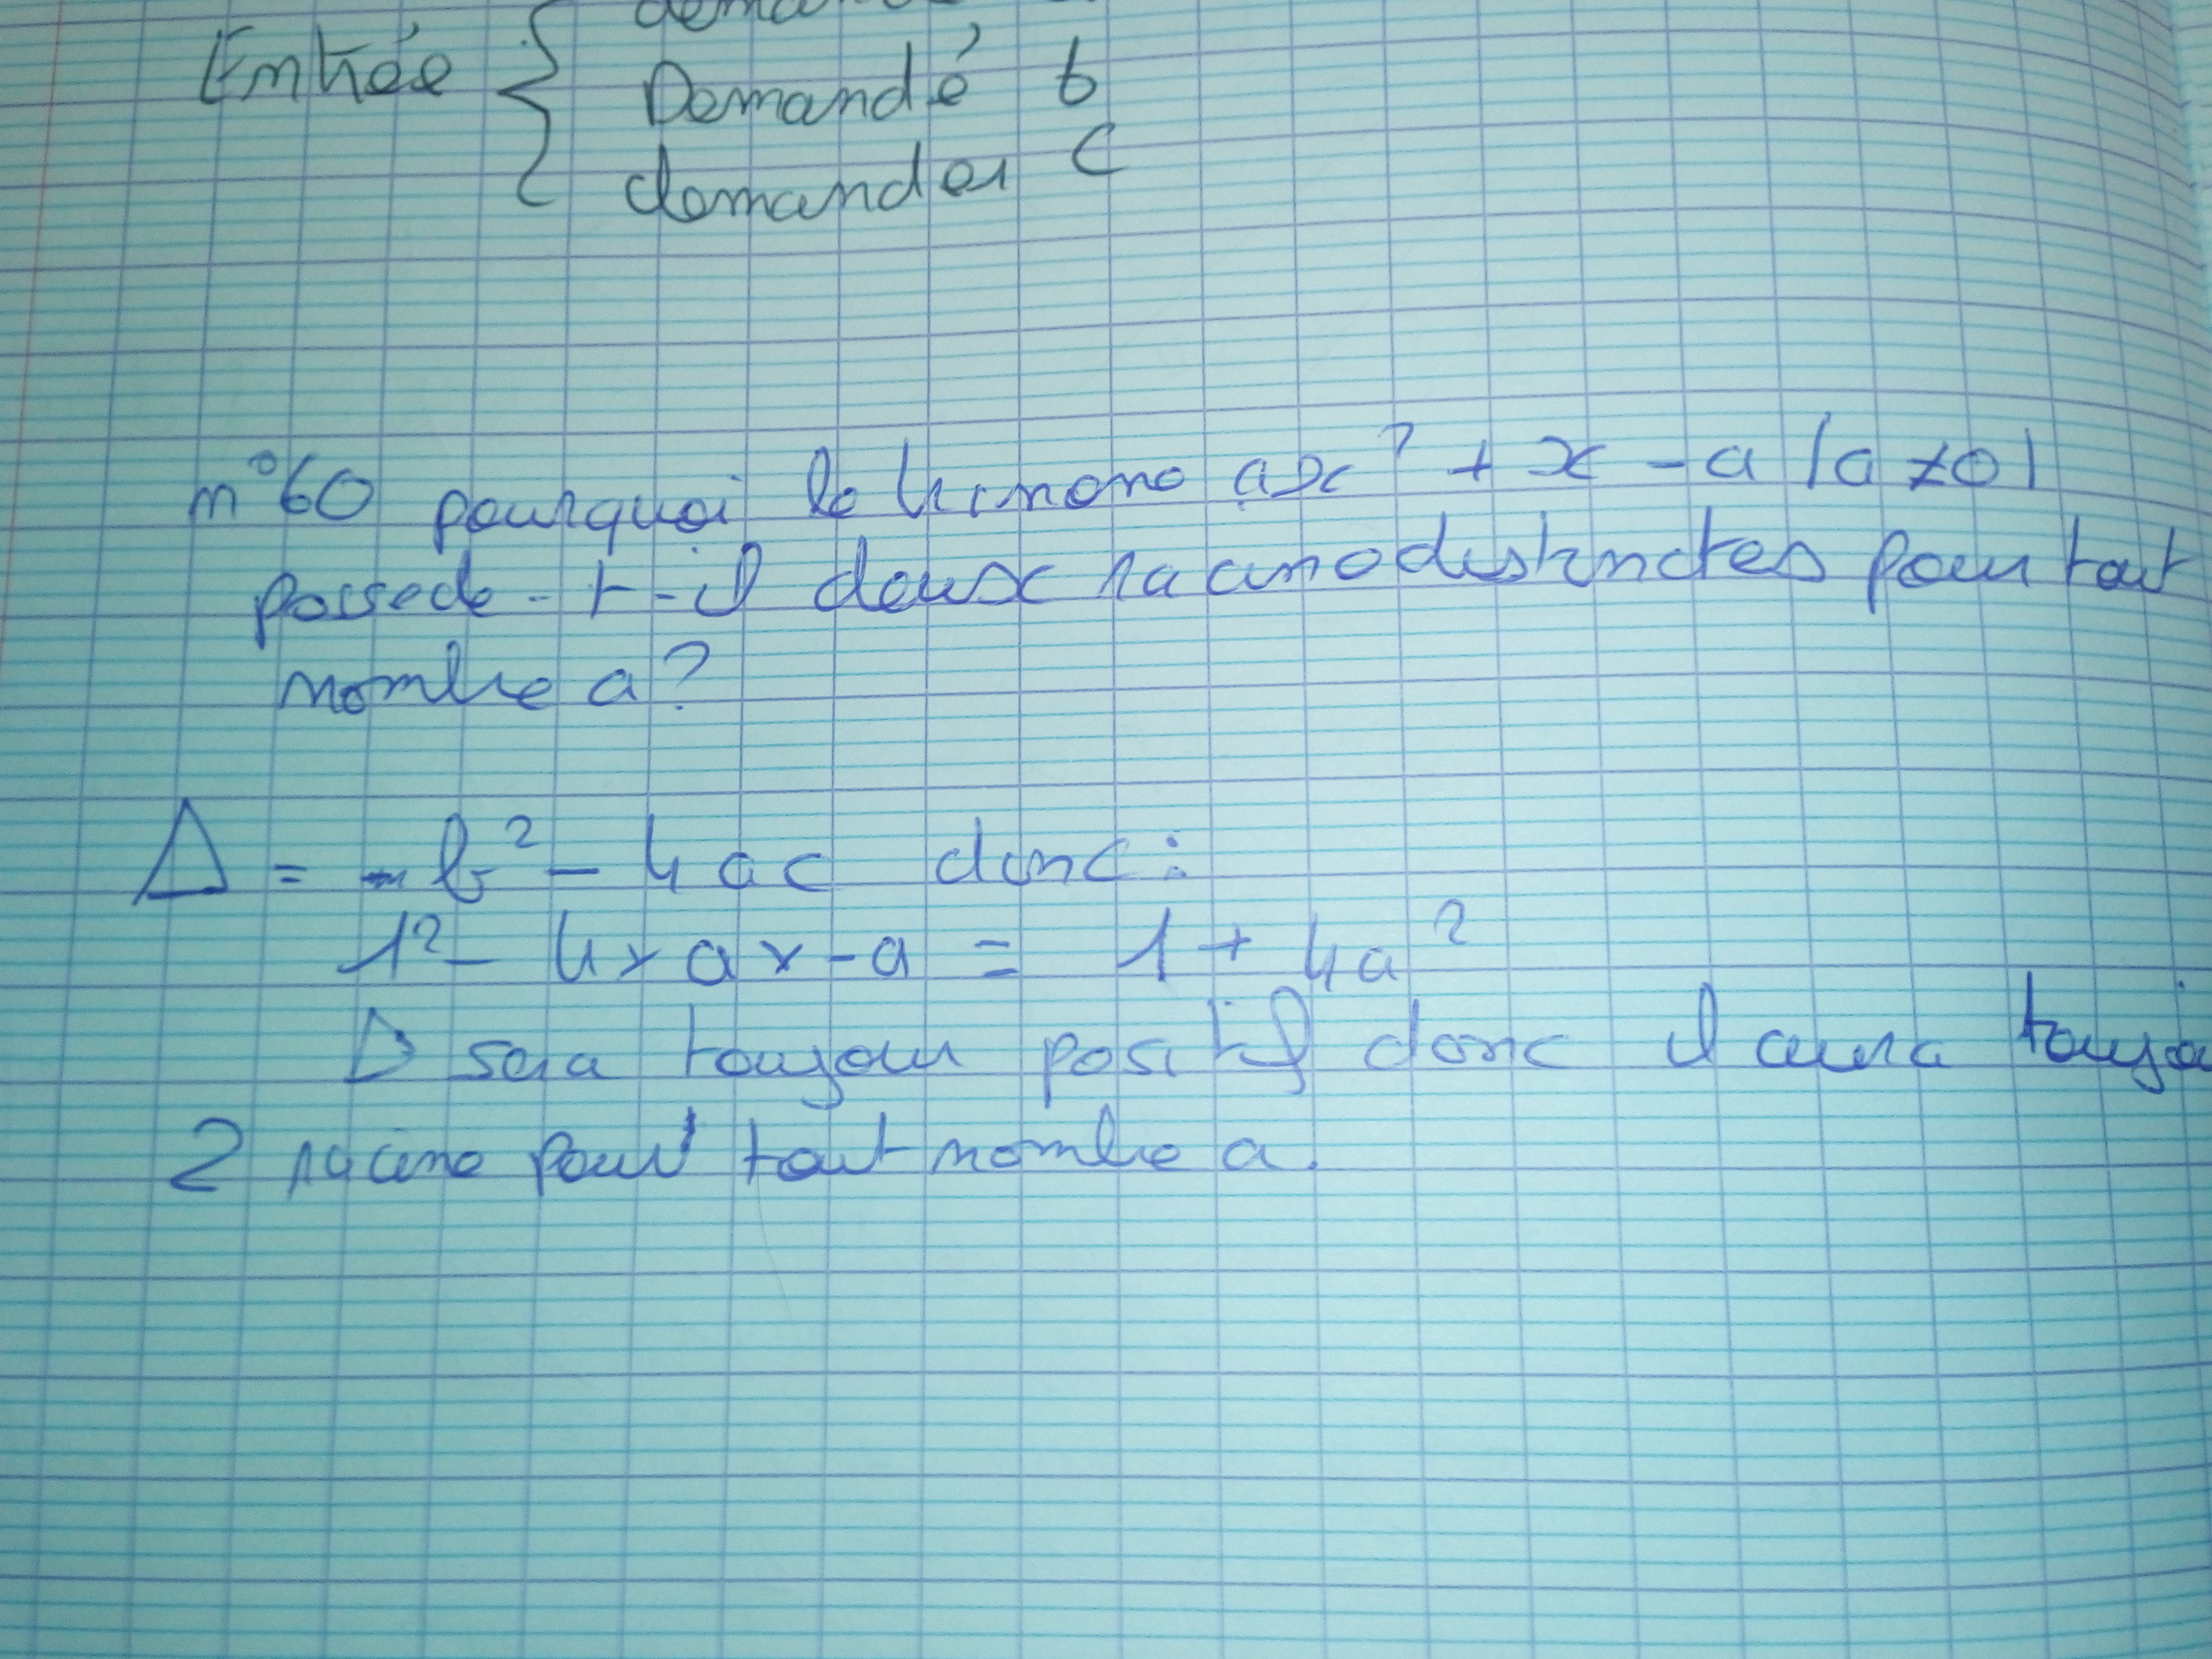 demande
Entrée { Demandé b
demander C
n°60 pourquoi le trinome ax² + x - a (a ≠ 0)
possede-t-il deux racine distinctes pour tout
nombre a?
Δ = b² - 4ac donc:
1² - 4 × a × -a = 1 + 4a²
Δ sera toujour positif donc il aura toujou
2 racine pour tout nombre a.